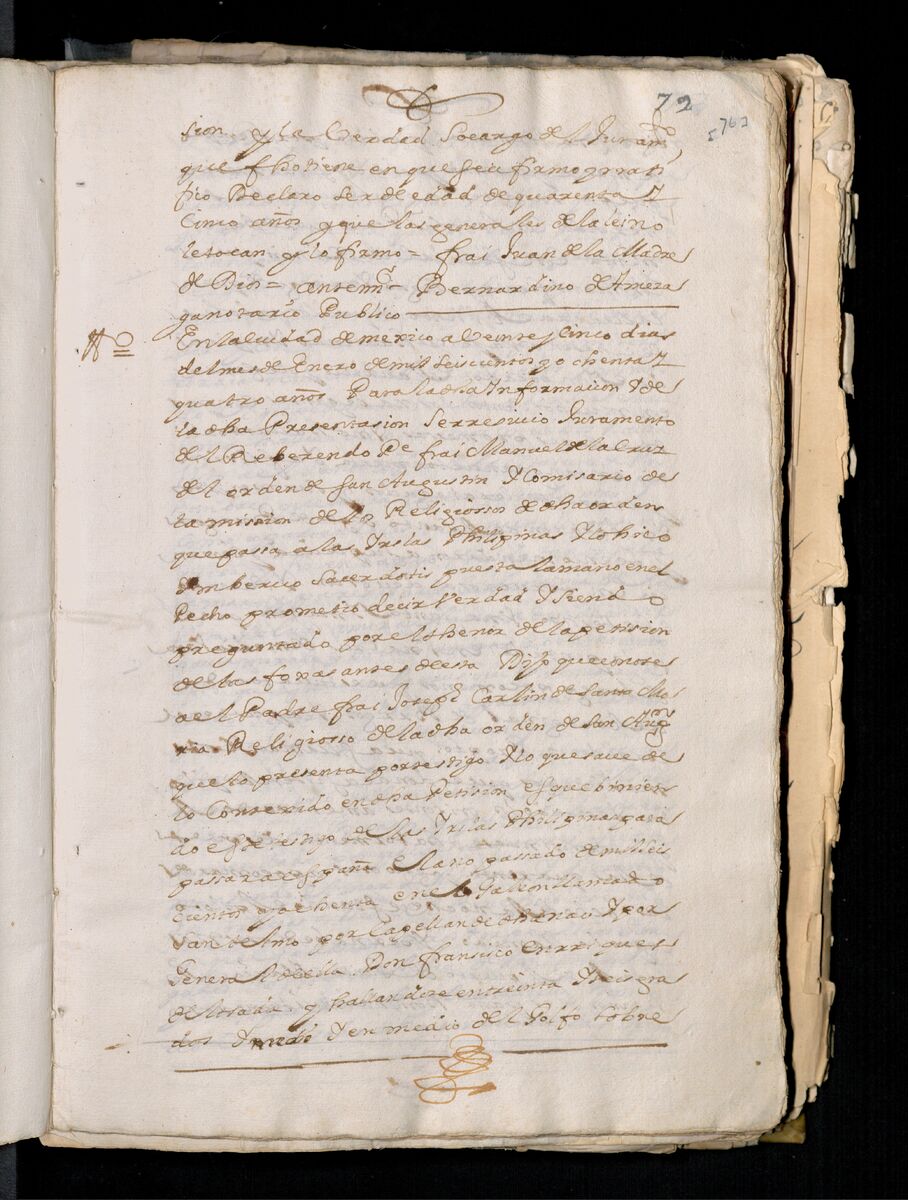 72
5762
sion y la Verdad Socargo del Juram.to
que fho tiene en que se afirmo y rrati
fico Declaro ser de edad de quarenta Y
Cinco años y que las generales de la lei no
le tocan y lo firmo = frai Juan de la Madre
de Dios = ante mi = Bernardino de Ameza
ga notario Publico
En la ciudad de mexico a Veinte y Cinco dias
del mes de Enero de mil seiscientos y ochenta Y
quatro años Para la dha Informacion Y de
la dha Presentasion se rresiuio Juramento
del Reberendo Pe frai Manuel de la Cruz
del orden de San Augustin Y Comisario de
la mission de los Religiossos de dha orden
que passa a las Yslas Philipinas Y lo hiço
Ymberuo Sacerdotis puesta la mano en el
Pecho prometio decir Verdad Y siendo
preguntado por el thenor de la petision
de las foxas antes de esta Dijo que conose
a el Padre frai Joseph Carlin de Santa Ma
ria Religiosso de la dha orden de San Aug.n
que lo presenta por testigo Y lo que saue de
lo Contenido en dha Petision es que binien
do este testigo de las Yslas Philipinas para
passar a españa el año passado de mil seis
cientos y ochenta en el Galeon llamado
San telmo por Capellan de dha nao Y por
General de ella Don francisco Enrriques
de losada y hallandose en treinta Y seis gra
dos Y medio Y en medio del Golfo sobre